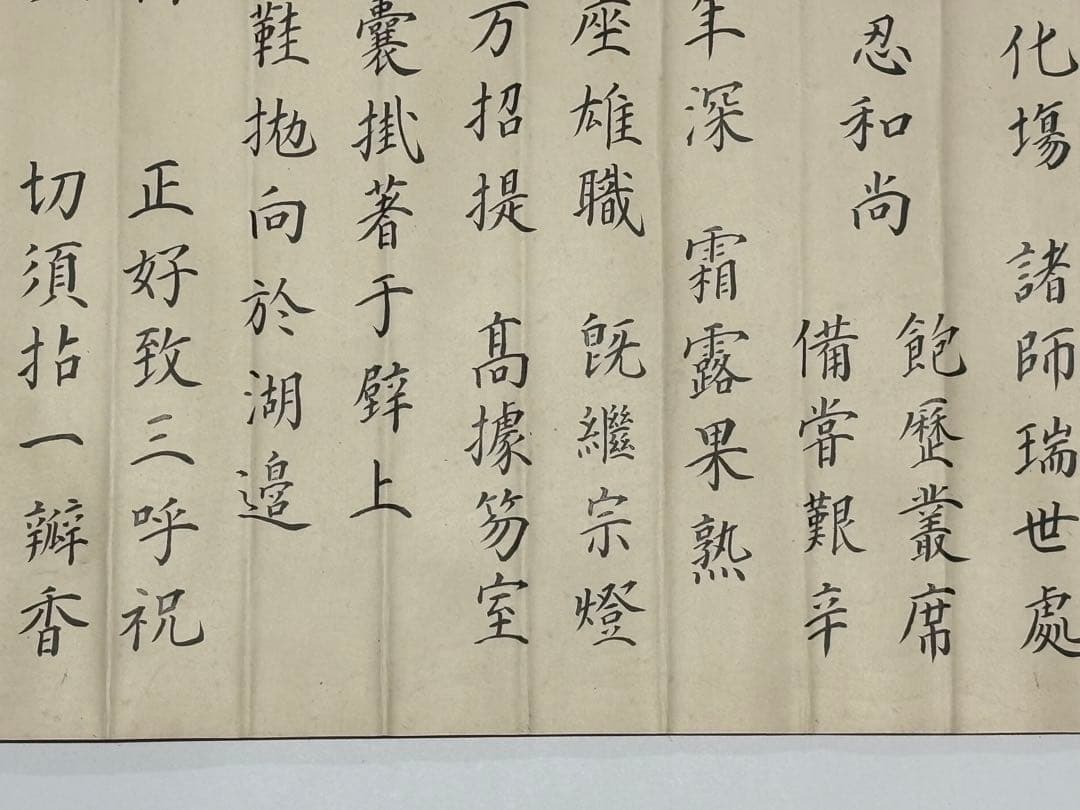 化塲　諸師瑞世處
忍和尚
飽歷叢席
備嘗艱辛
年深　霜露果熟
座雄職　旣繼宗燈
万招提　髙據笏室
鞋拋向於湖邉
囊掛著于壁上
正好致三呼祝
切須拈一瓣香